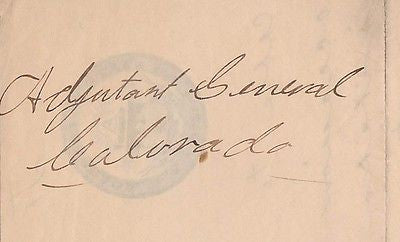 Adjutant General
Colorado